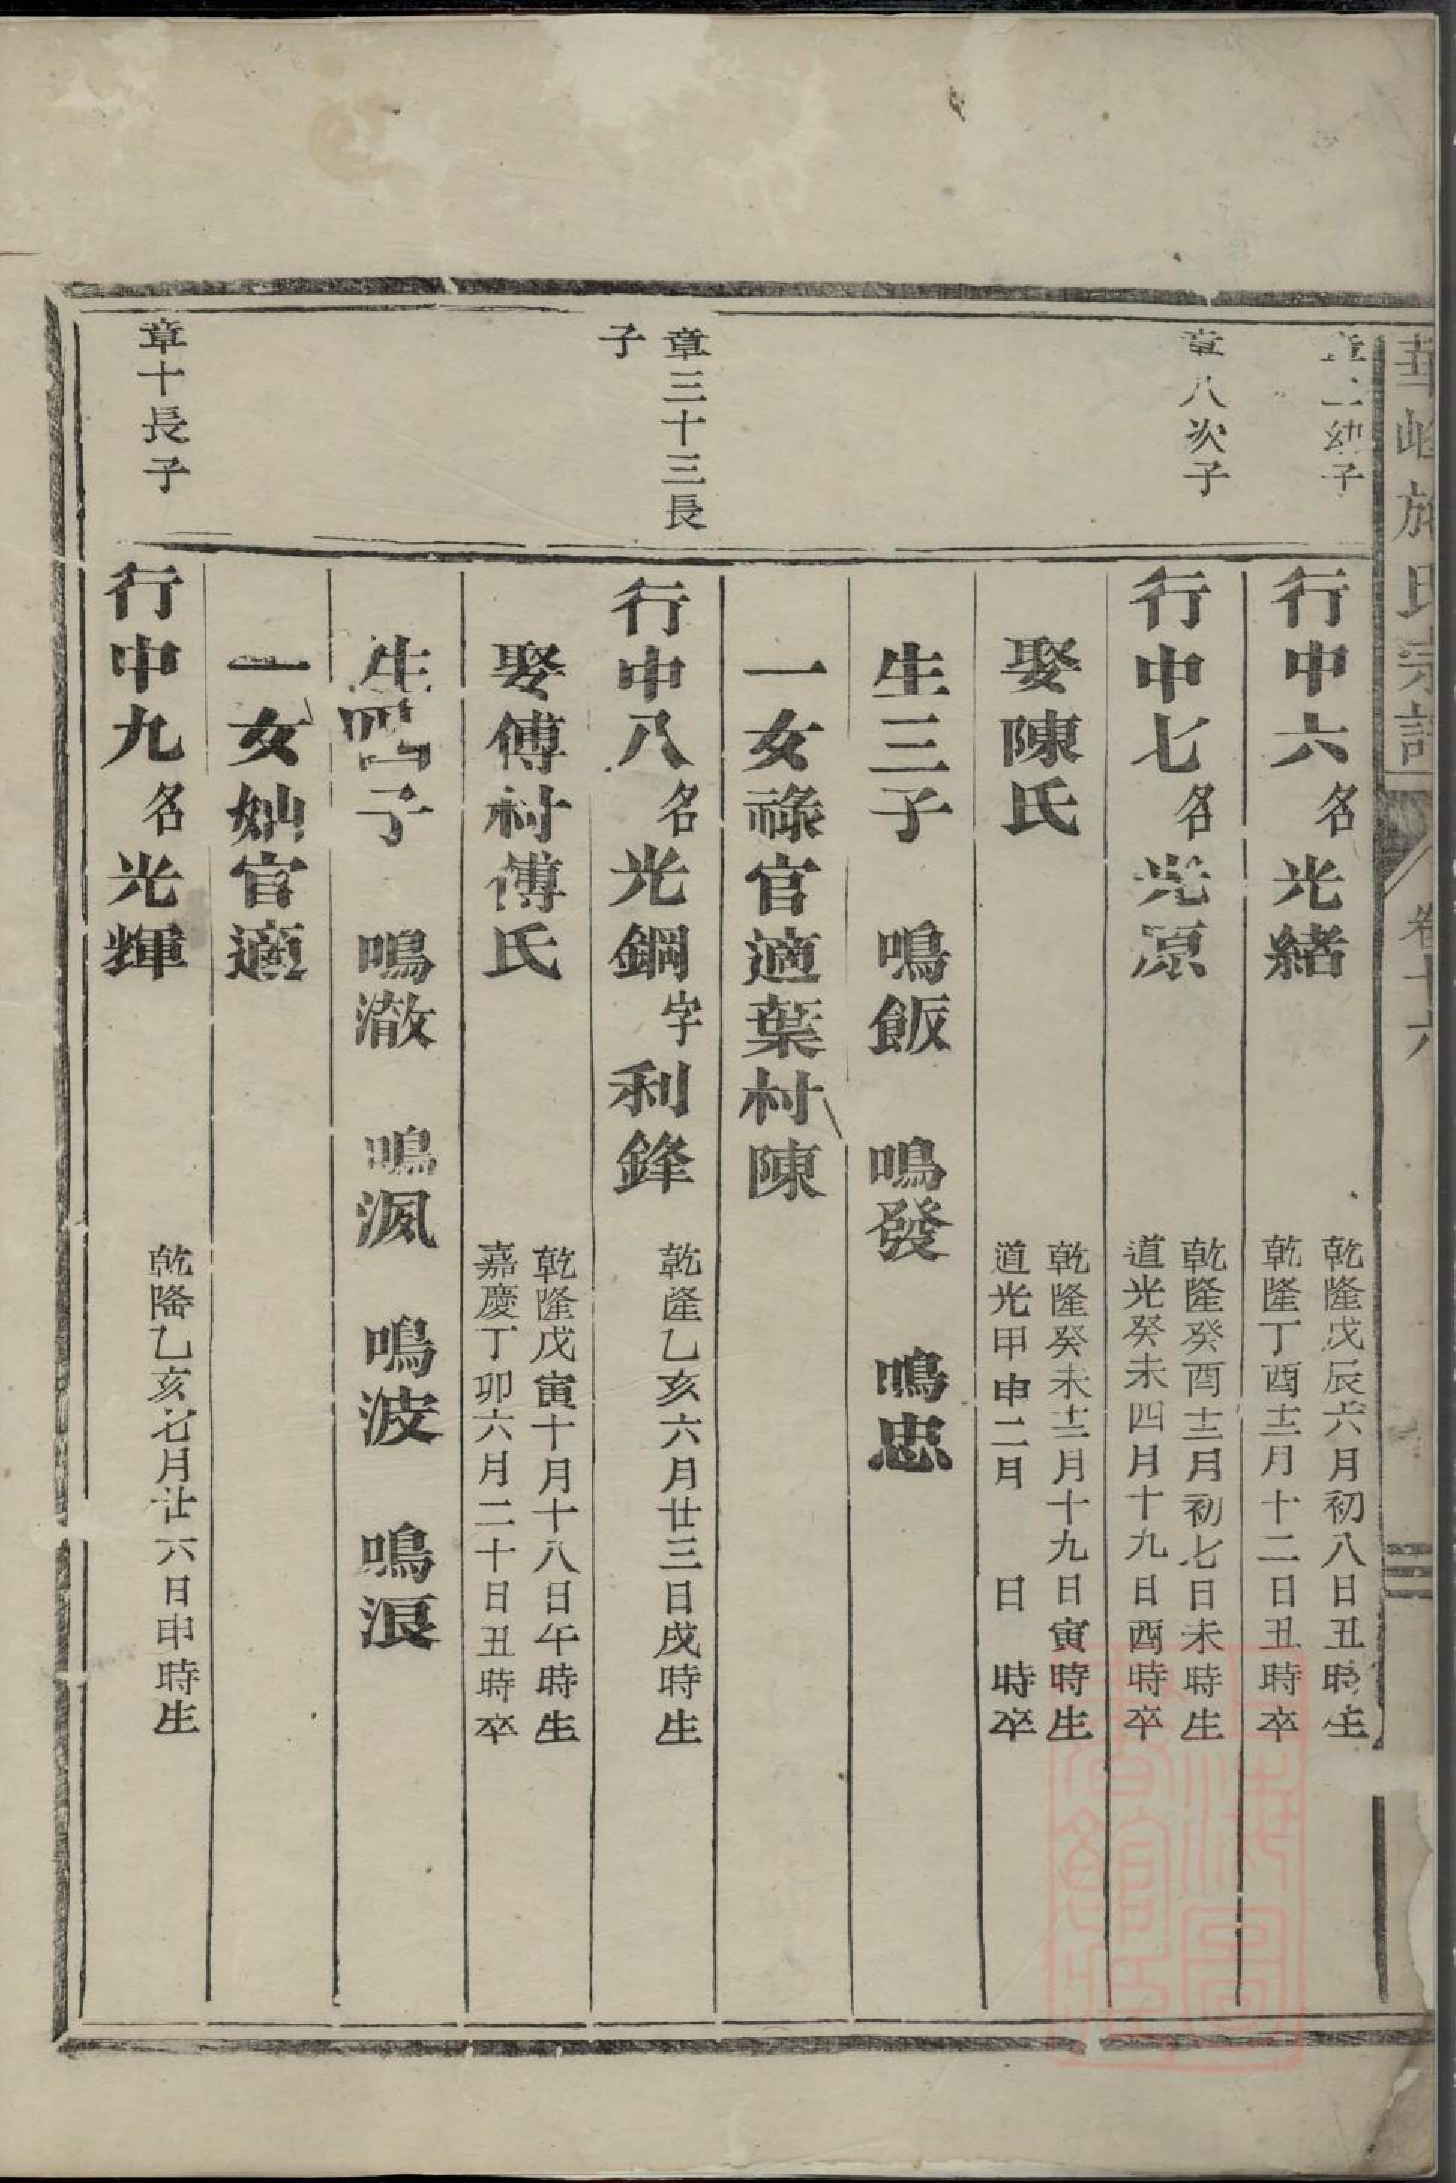 施氏宗譜 卷十六
章二幼子
行中六名光緒 乾隆戊辰六月初八日丑時生
乾隆丁酉十二月十二日丑時卒
章八次子
行中七名光原 乾隆癸酉十二月初七日未時生
道光癸未四月十九日酉時卒
娶陳氏 乾隆癸未十二月十九日寅時生
道光甲申二月 日 時卒
生三子 鳴飯 鳴發 鳴忠
一女祿官適葉村陳
章三十三長
子
行中八名光鋼字利鋒 乾隆乙亥六月廿三日戌時生
娶傅村傅氏 乾隆戊寅十月十八日午時生
嘉慶丁卯六月二十日丑時卒
生四子 鳴澈 鳴渢 鳴波 鳴浪
一女妯官適
章十長子
行中九名光輝 乾隆乙亥七月廿六日申時生